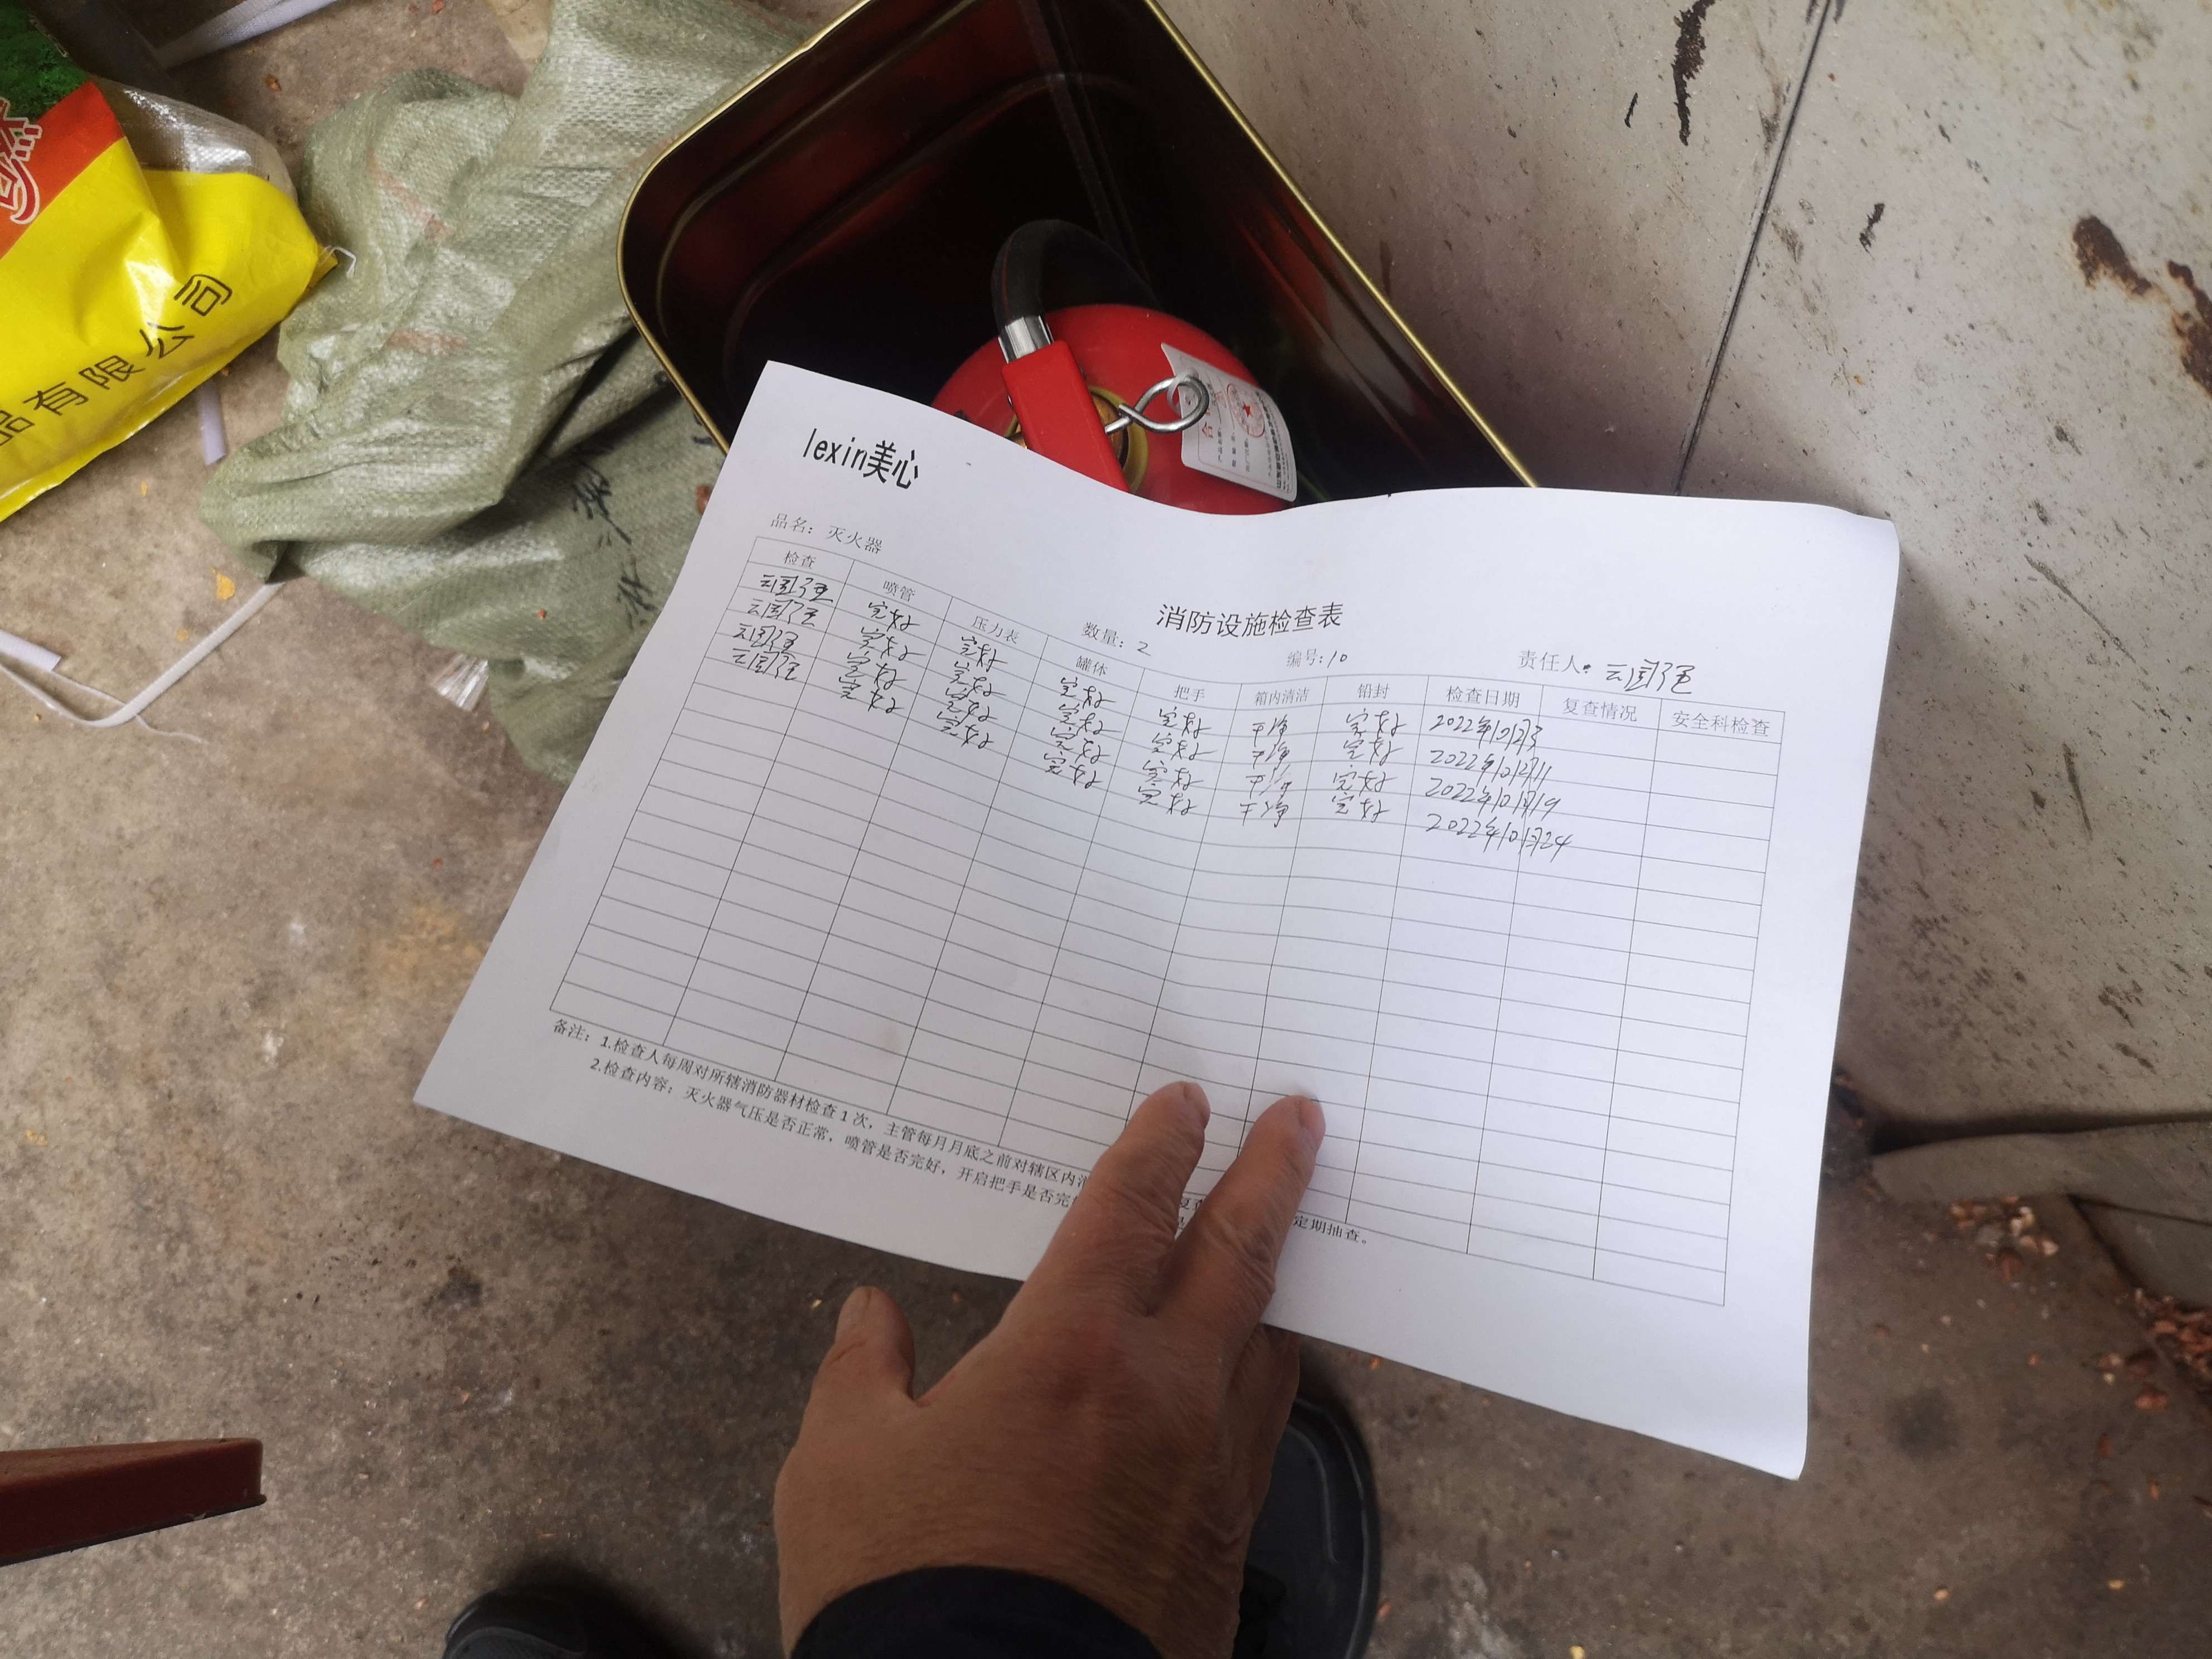 品有限公司
合
lexin美心
消防设施检查表
品名：灭火器 数量：2 编号:10 责任人：云国强
检查 喷管 压力表 罐体 把手 箱内清洁 铅封 检查日期 复查情况 安全科检查
云国强 完好 完好 完好 完好 干净 完好 2022年10月3
云国强 完好 完好 完好 完好 干净 完好 2022年10月11
云国强 完好 完好 完好 完好 干净 完好 2022年10月19
云国强 完好 完好 完好 完好 干净 完好 2022年10月24
备注：1.检查人每周对所辖消防器材检查1次，主管每月月底之前对辖区内消 复查 定期抽查。
2.检查内容：灭火器气压是否正常，喷管是否完好，开启把手是否完